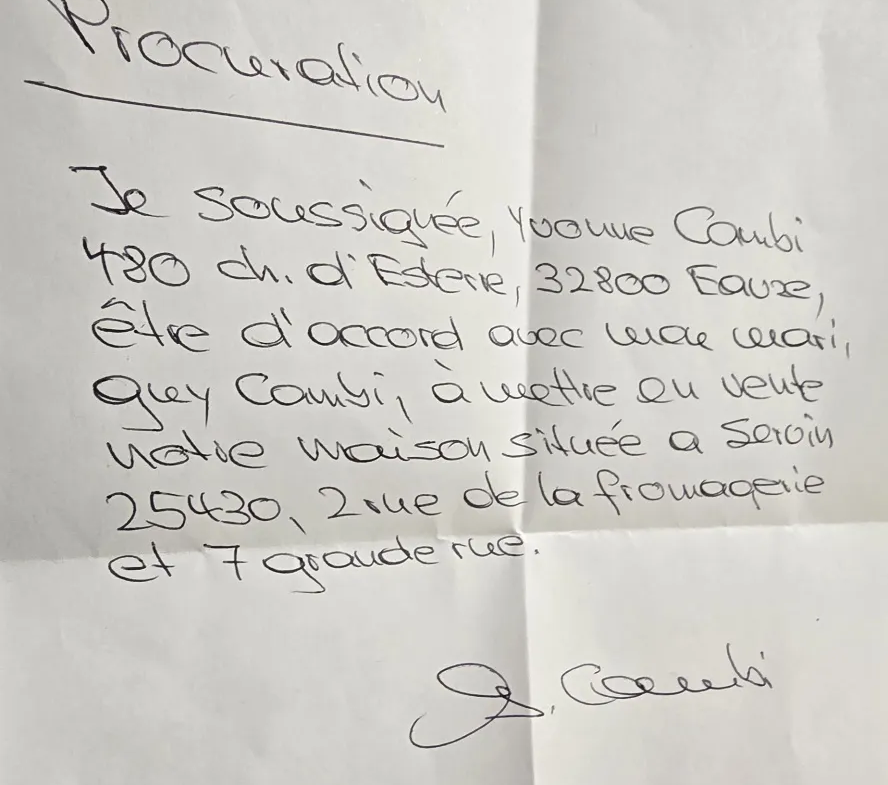 Procuration
Je soussignée, Yvonne Cambi
480 ch. d'Esterre, 32800 Eauze,
être d'accord avec mon mari,
Guy Cambi, à mettre en vente
notre maison située a Servin
25430, 2 rue de la fromagerie
et 7 grande rue.
Cambi